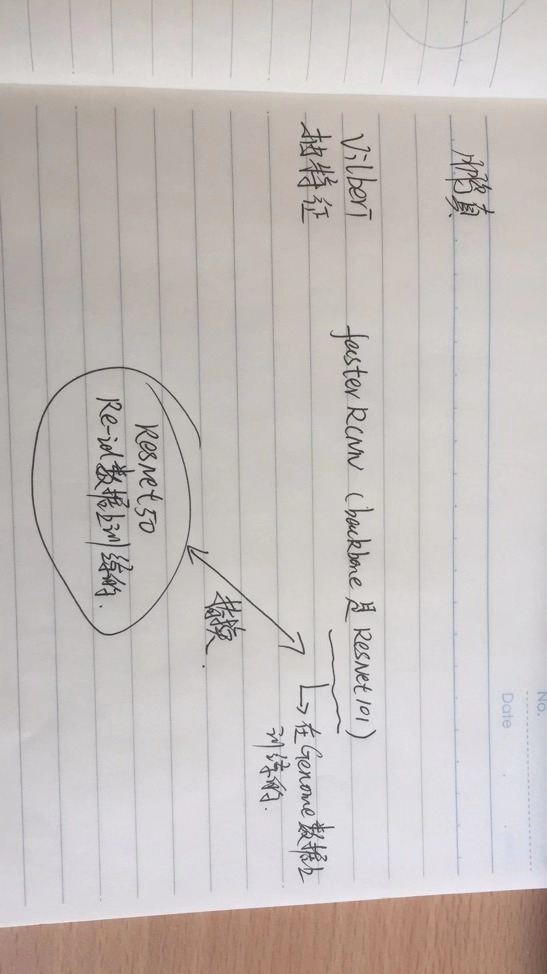 No.
Date
Vilbert
抽特征
faster RCNN (backbone 是 ResNet101)
在Genome数据上
训练的.
替换.
Resnet50
Re-id数据上训练的.